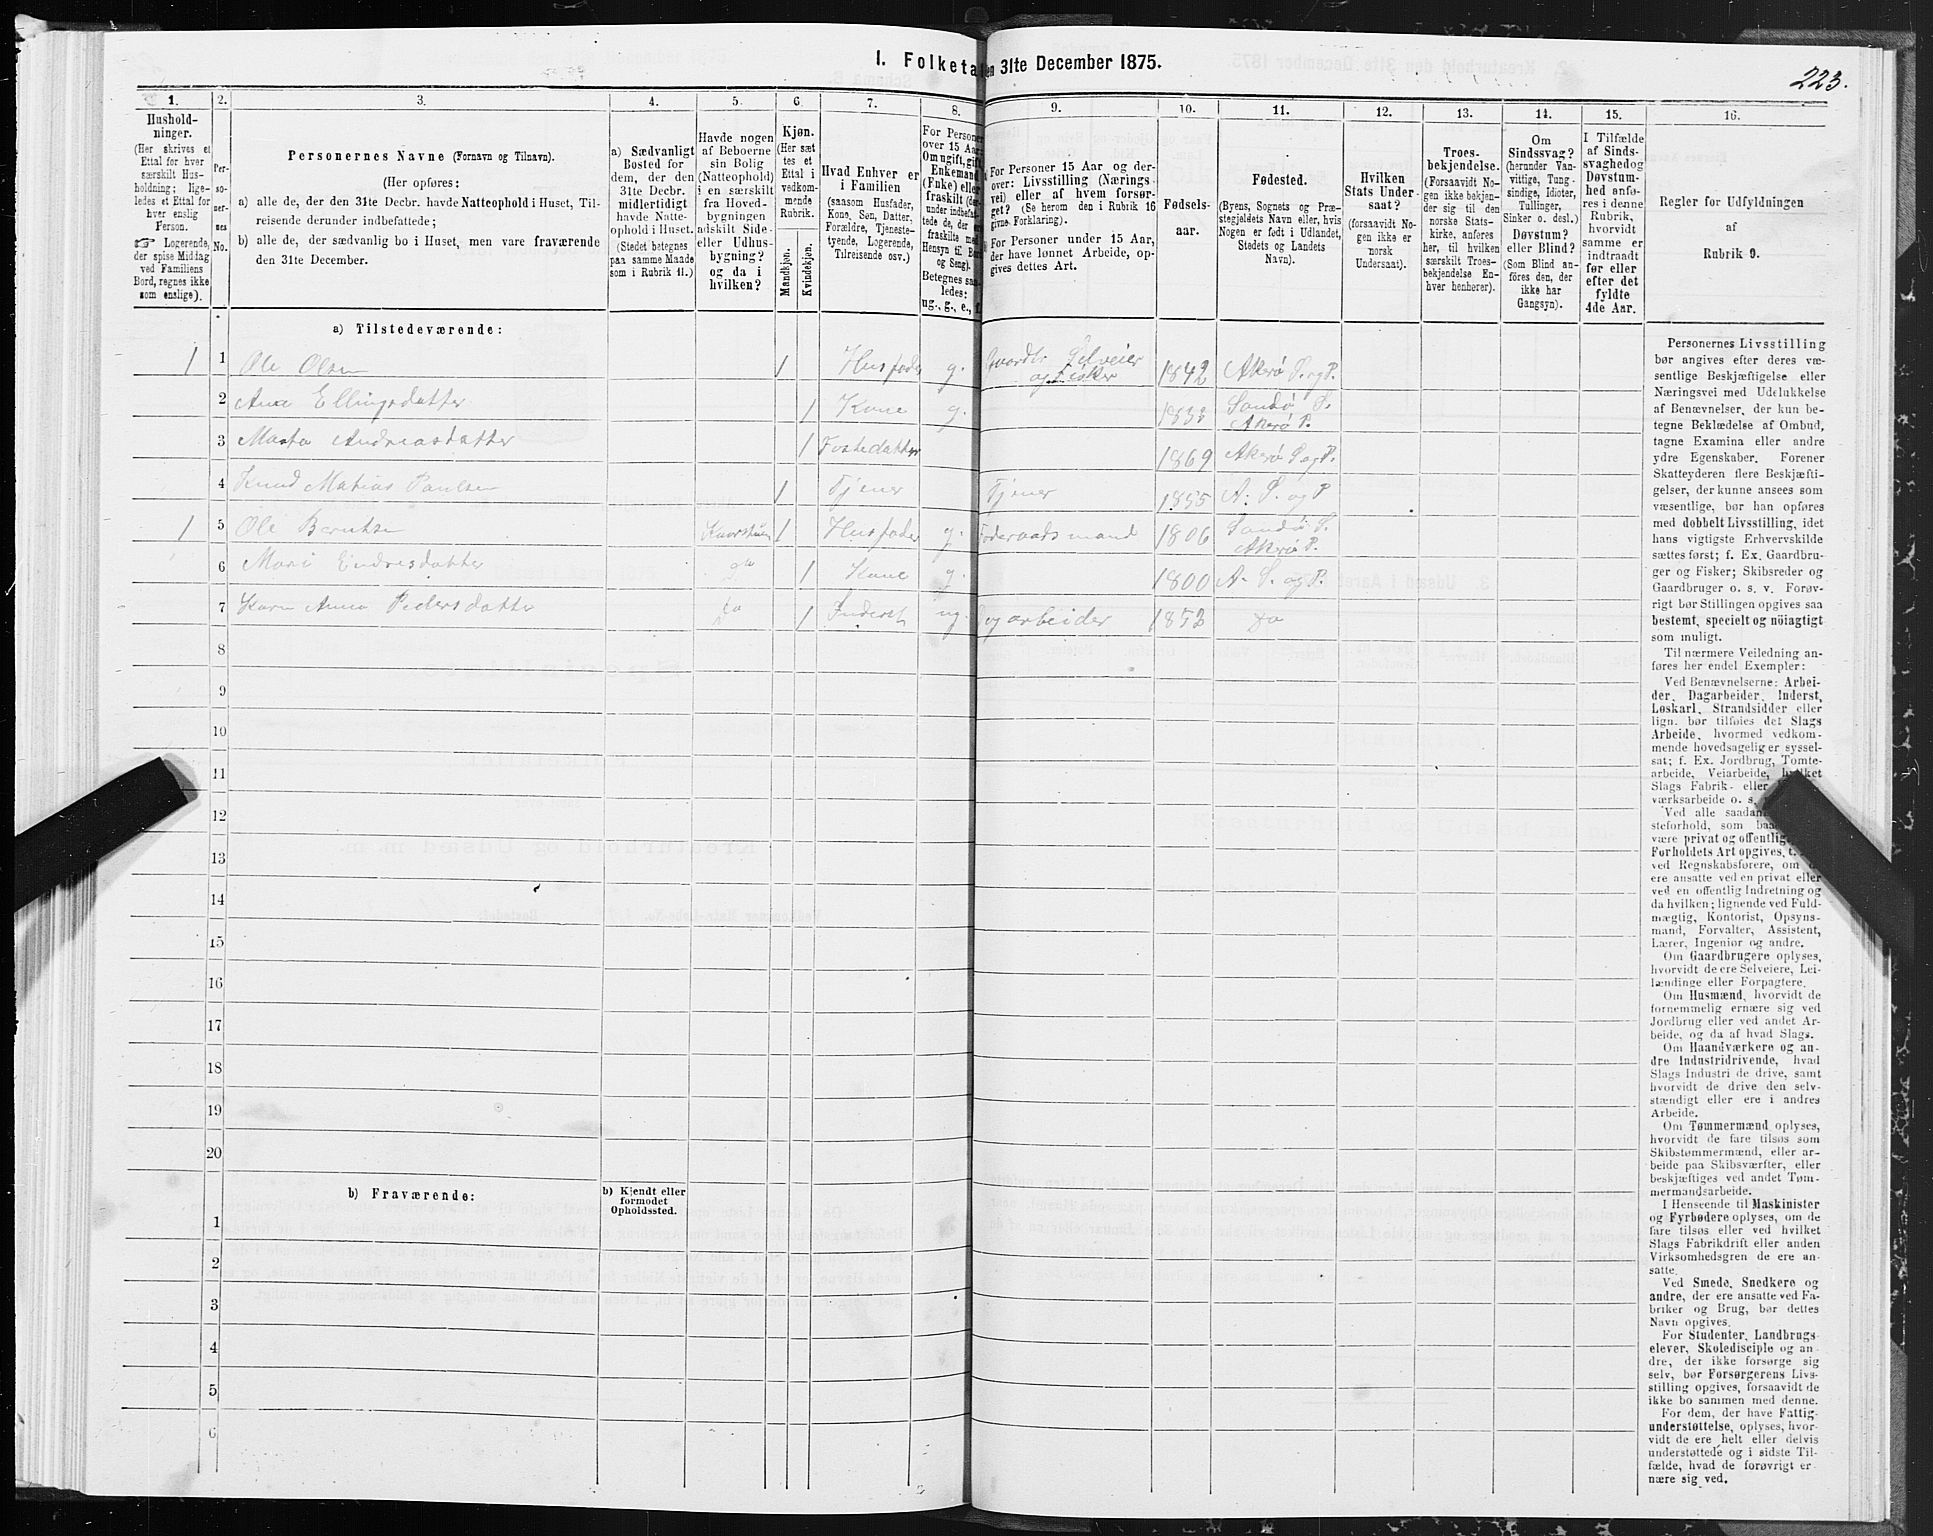 I. Folketal den 31te December 1875.
223.
1.
Hushold-
ninger.
(Her skrives et
Ettal for hver
særskilt Hus-
holdning; lige-
ledes et Ettal for
hver enslig
Person.
☞ Logerende,
der spise Middag
ved Familiens
Bord, regnes ikke
som enslige).
2.
Per-
so-
ner-
nes
No.
3.
Personernes Navne (Fornavn og Tilnavn).
(Her opføres:
a) alle de, der den 31te Decbr. havde Natteophold i Huset, Til-
reisende derunder indbefattede;
b) alle de, der sædvanlig bo i Huset, men vare fraværende
den 31te December.
4.
a) Sædvanligt
Bosted for
dem, der den
31te Decbr.
midlertidigt
havde Natte-
ophold i Huset.
(Stedet betegnes
paa samme Maade
som i Rubrik 11.)
5.
Havde nogen
af Beboerne
sin Bolig
(Natteophold)
i en særskilt
fra Hoved-
bygningen
adskilt Side-
eller Udhus-
bygning?
og da i
hvilken?
6.
Kjøn.
(Her sæt-
tes et
Ettal i
vedkom-
mende
Rubrik.
Mandkjøn.
Kvindekjøn.
7.
Hvad Enhver er
i Familien
(saasom Husfader,
Kone, Søn, Datter,
Forældre, Tjeneste-
tyende, Logerende,
Tilreisende osv.)
8.
For Personer
over 15 Aar:
Om ugift, gift,
Enkemand
(Enke) eller
fraskilt (der-
under indbefat-
tede de, der ere
fraskilte med
Hensyn til Bord
og Seng).
Betegnes saa-
ledes:
ug., g., e., f.
9.
For Personer 15 Aar og der-
over: Livsstilling (Nærings-
vei) eller af hvem forsør-
get? (Se herom den i Rubrik 16
givne Forklaring.)
For Personer under 15 Aar,
der have lønnet Arbeide, op-
gives dettes Art.
10.
Fødsels-
aar.
11.
Fødested.
(Byens, Sognets og Præ-
stegjeldets Navn eller, hvis
Nogen er født i Udlandet,
Stedets og Landets
Navn).
12.
Hvilken
Stats Under-
saat?
(forsaavidt No-
gen ikke er
norsk
Undersaat).
13.
Troes-
bekjendelse.
(Forsaavidt No-
gen ikke bekjen-
der sig til den
norske Stats-
kirke, anføres
her, til hvilken
særskilt Troes-
bekjendelse En-
hver henhører).
14.
Om
Sindssvag?
(herunder Van-
vittige, Tung-
sindige, Idioter,
Tullinger,
Sinker o. desl.)
Døvstum?
eller Blind?
(Som Blind an-
føres den, der
ikke har
Gangsyn).
15.
I Tilfælde
af Sinds-
svaghed og
Døvstum-
hed anfø-
res i denne
Rubrik,
hvorvidt
samme er
indtraadt
før eller
efter det
fyldte
4de Aar.
16.
Regler for Udfyldningen
af
Rubrik 9.
a) Tilstedeværende:
1 1 Ole Olsen 1 Husfader g. Gaardbr. Selveier og Fisker 1842 Akerø S. og P.
2 Ane Ellingsdatter 1 Kone g. 1832 Sandø S. Akerø P.
3 Marta Andreasdatter 1 Fostedatter 1869 Akerø S. og P.
4 Knud Matias Paulsen 1 Tjener Tjener 1855 A. S. og P
1 5 Ole Berntsen 1 Husfader g. Føderaadsmand 1806 Sandø S. Akerø P.
6 Mari Endresdatter do 1 Kone g. 1800 A. S. og P.
7 Karn Anna Pedersdatter do 1 Inderst ug. Dagarbeider 1852 do
8
9
10
11
12
13
14
15
16
17
18
19
20
b) Fraværende:
b) Kjendt eller
formodet
Opholdssted.
1
2
3
4
5
6
Personernes Livsstilling
bør angives efter deres væ-
sentlige Beskjæftigelse eller
Næringsvei med Udelukkelse
af Benævnelser, der kun be-
tegne Beklædelse af Ombud,
tagne Examina eller andre
ydre Egenskaber. Forener
Skatteyderen flere Beskjæfti-
gelser, der kunne ansees som
væsentlige, bør han opføres
med dobbelt Livsstilling, idet
hans vigtigste Erhvervskilde
sættes først; f. Ex. Gaardbru-
ger og Fisker; Skibsreder og
Gaardbruger o. s. v. Forøv-
rigt bør Stillingen opgives saa
bestemt, specielt og nöiagtigt
som muligt.
Til nærmere Veiledning an-
føres her endel Exempler:
Ved Benævnelserne: Arbei-
der, Dagarbeider, Inderst,
Løskarl, Strandsidder eller
lign. bør tilføies det Slags
Arbeide, hvormed vedkom-
mende hovedsagelig er syssel-
sat; f. Ex. Jordbrug, Tomte-
arbeide, Veiarbeide, hvilket
Slags Fabrik- eller
værksarbeide o. s.
Ved alle saadan
steforhold, som
være privat og offentlig
Forholdets Art opgives,
ved Regnskabsførere, om
ere ansatte ved en privat eller
ved en offentlig Indretning og
da hvilken; lignende ved Fuld-
mægtig, Kontorist, Opsyns-
mand, Forvalter, Assistent,
Lærer, Ingeniør og andre.
Om Gaardbrugere oplyses,
hvorvidt de ere Selveiere, Lei-
lændinge eller Forpagtere.
Om Husmænd, hvorvidt de
fornemmelig ernære sig ved
Jordbrug eller ved andet Ar-
beide, og da af hvad Slags.
Om Haandværkere og an-
dre Industridrivende, hvad
Slags Industri de drive, samt
hvorvidt de drive den selv-
stændigt eller ere i andres
Arbeide.
Om Tømmermænd oplyses,
hvorvidt de fare tilsøs som
Skibstømmermænd, eller ar-
beide paa Skibsværfter, eller
beskjæftiges ved andet Tøm-
mermandsarbeide.
I Henseende til Maskinister
og Fyrbødere oplyses, om de
fare tilsøs eller ved hvilket
Slags Fabrikdrift eller anden
Virksomhedsgren de ere an-
satte.
Ved Smede, Snedkere og
andre, der ere ansatte ved Fa-
briker og Brug, bør dettes
Navn opgives.
For Studenter, Landbrugs-
elever, Skoledisciple og an-
dre, der ikke forsørge sig
selv, bør Forsørgerens Livs-
stilling opgives, forsaavidt de
ikke bo sammen med denne.
For dem, der have Fattig-
understøttelse, oplyses, hvor-
vidt de ere helt eller delvis
understøttede og i sidste Til-
fælde, hvad de forøvrigt er-
nære sig ved.